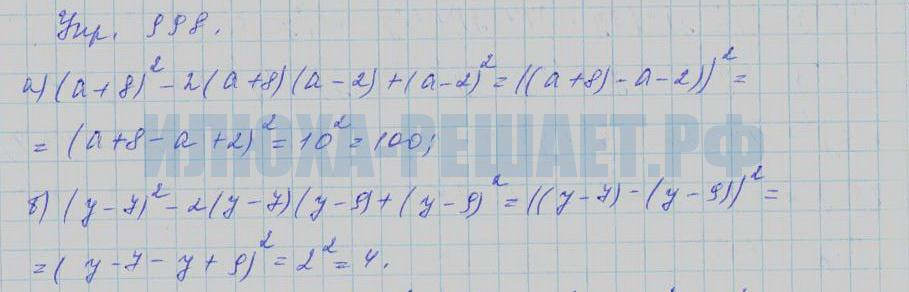 Упр. 998.
а) (a+8)² - 2(a+8)(a-2) + (a-2)² = ((a+8) - a - 2))² =
= (a+8-a+2)² = 10² = 100;
ИЛЮХА-РЕШАЕТ.РФ
б) (y-7)² - 2(y-7)(y-9) + (y-9)² = ((y-7) - (y-9))² =
= (y-7-y+9)² = 2² = 4.